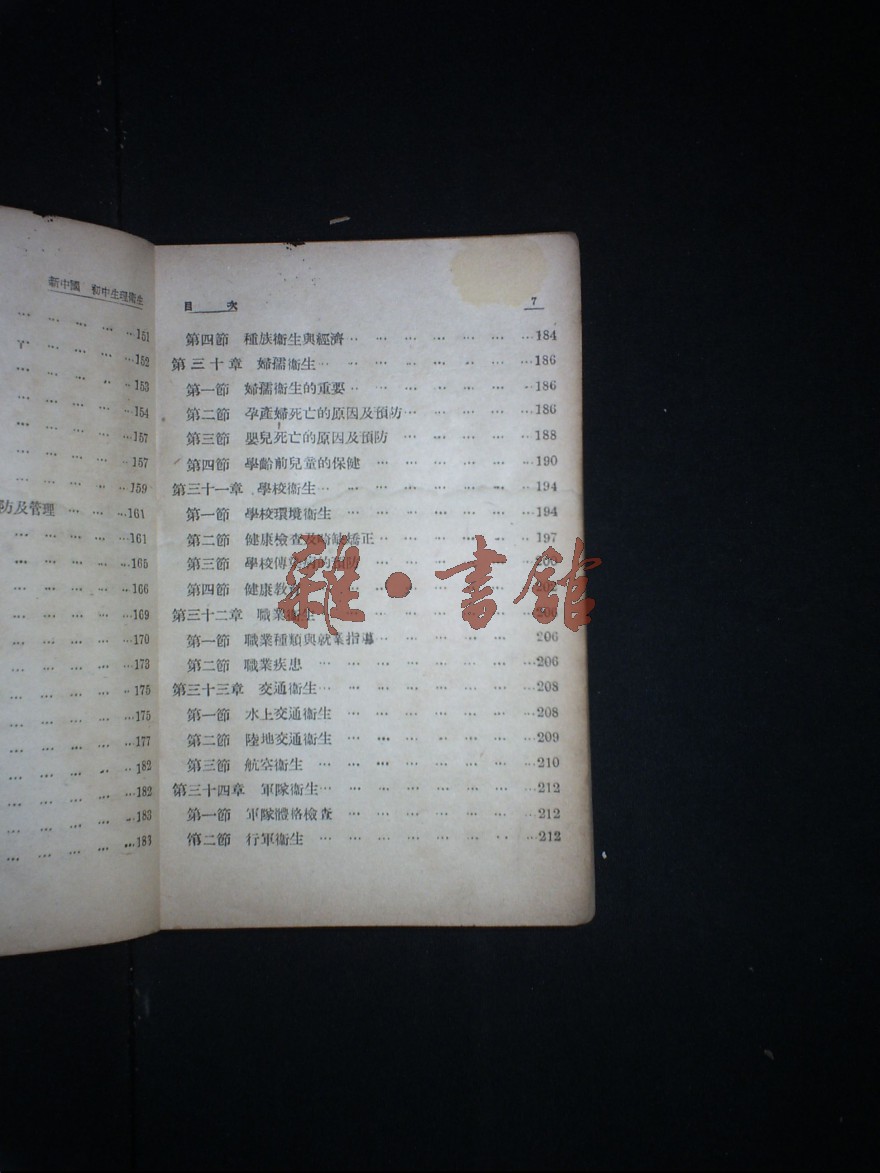 新中國 初中生理衛生
… … … … …151
… … … … …152
… … … … …153
… … … … …154
… … … … …157
… … … … …157
… … … … …159
防及管理 … … …161
… … … … …161
… … … … …165
… … … … …166
… … … … …169
… … … … …170
… … … … …173
… … … … …175
… … … … …175
… … … … …177
… … … … …182
… … … … …182
… … … … …183
… … … … …183
目 次 7
第四節 種族衞生與經濟… … … … … … …184
第三十章 婦孺衞生… … … … … … … …186
第一節 婦孺衞生的重要… … … … … … …186
第二節 孕產婦死亡的原因及預防… … … … …186
第三節 嬰兒死亡的原因及預防 … … … … …188
第四節 學齡前兒童的保健 … … … … … …190
第三十一章 學校衞生… … … … … … … …194
第一節 學校環境衞生 … … … … … … …194
第二節 健康檢查及缺點矯正… … … … … …197
第三節 學校傳染病的預防 … … … … … …200
第四節 健康教育 … … … … … … …202
第三十二章 職業衞生… … … … … … …206
第一節 職業種類與就業指導 … … … … …206
第二節 職業疾患 … … … … … … … …206
第三十三章 交通衞生… … … … … … … …208
第一節 水上交通衞生 … … … … … … …208
第二節 陸地交通衞生 … … … … … … …209
第三節 航空衞生 … … … … … … … …210
第三十四章 軍隊衞生… … … … … … … …212
第一節 軍隊體格檢查 … … … … … … …212
第二節 行軍衞生 … … … … … … … …212
雜·書館